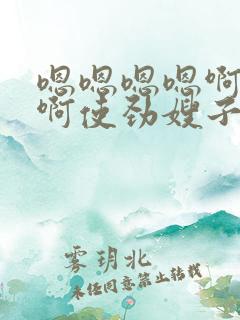 嗯嗯嗯嗯啊
啊使劲嫂子
雾玥北
未经同意禁止转载